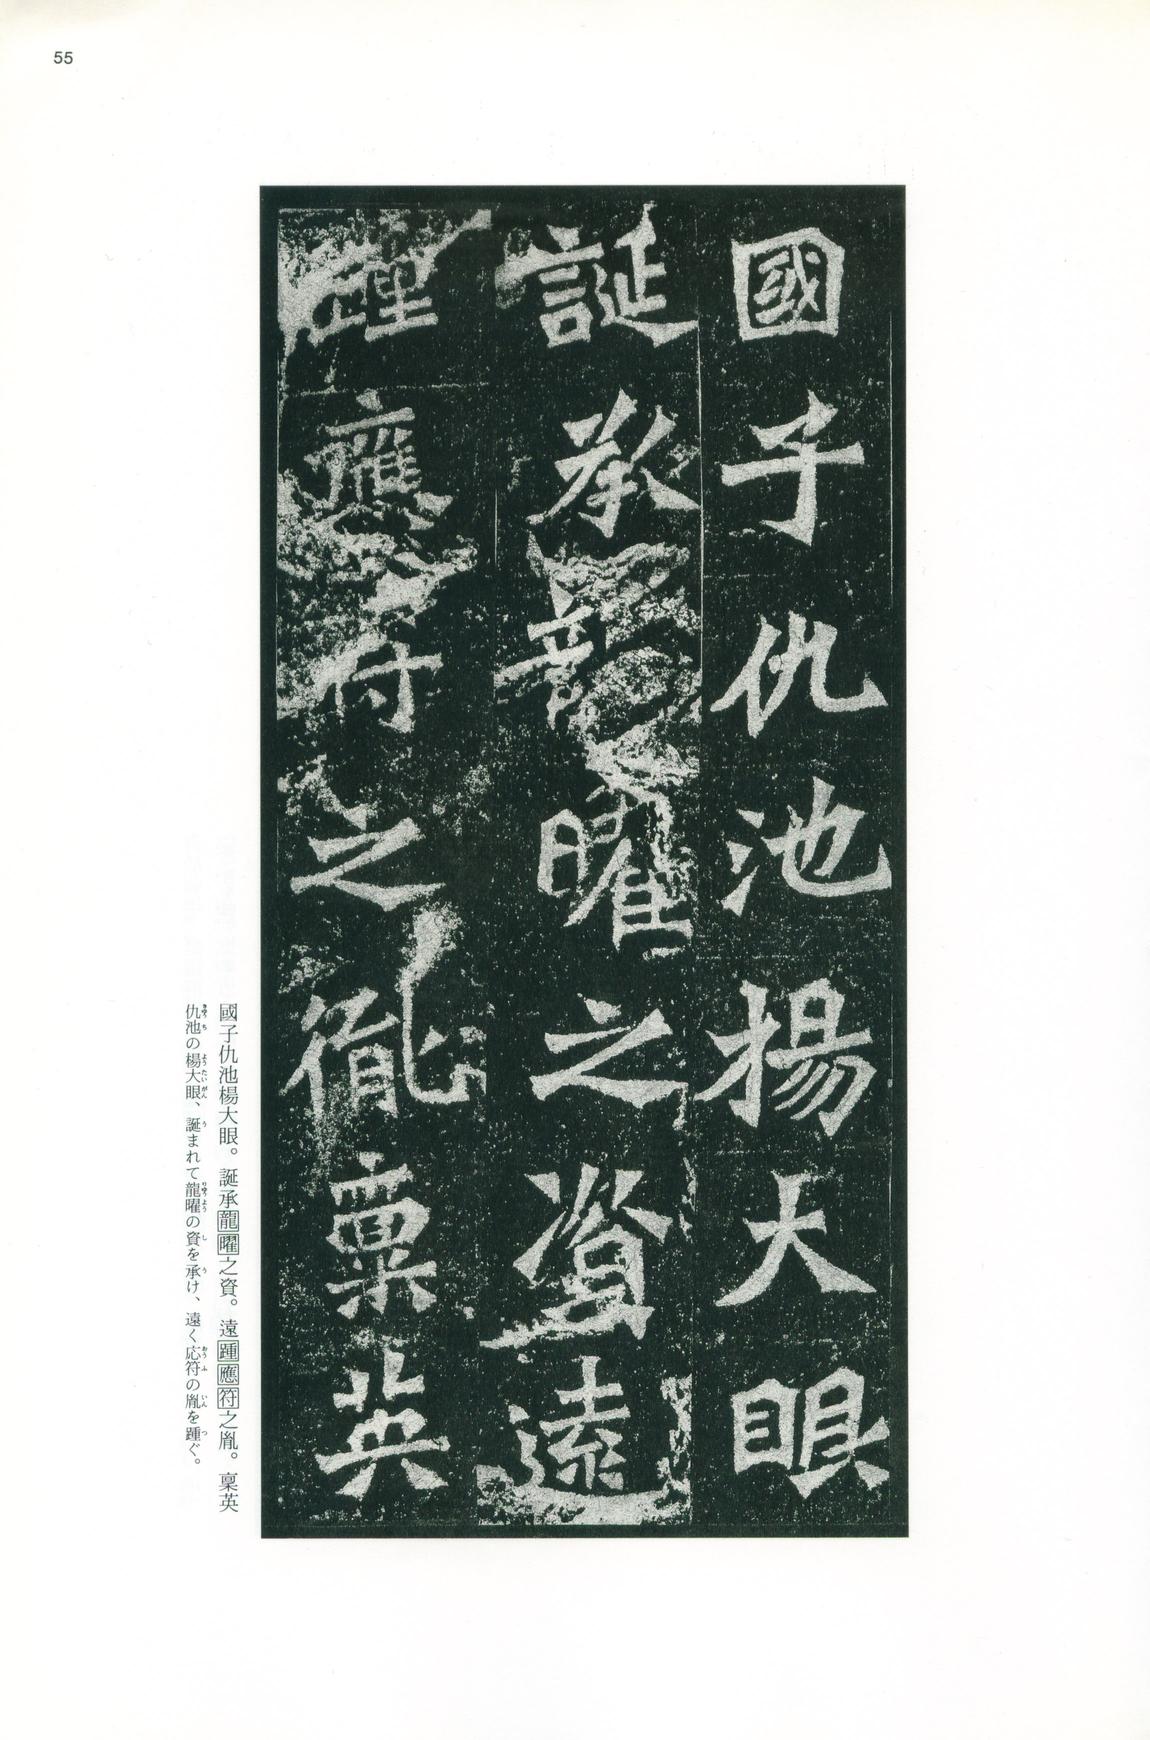 55
國子仇池楊大眼
誕承龍曜之資遠
踵應符之胤稟英
國子仇池楊大眼。誕承龍曜之資。遠踵應符之胤。稟英
仇池の楊大眼、誕まれて龍曜の資を承け、遠く応符の胤を踵ぐ。